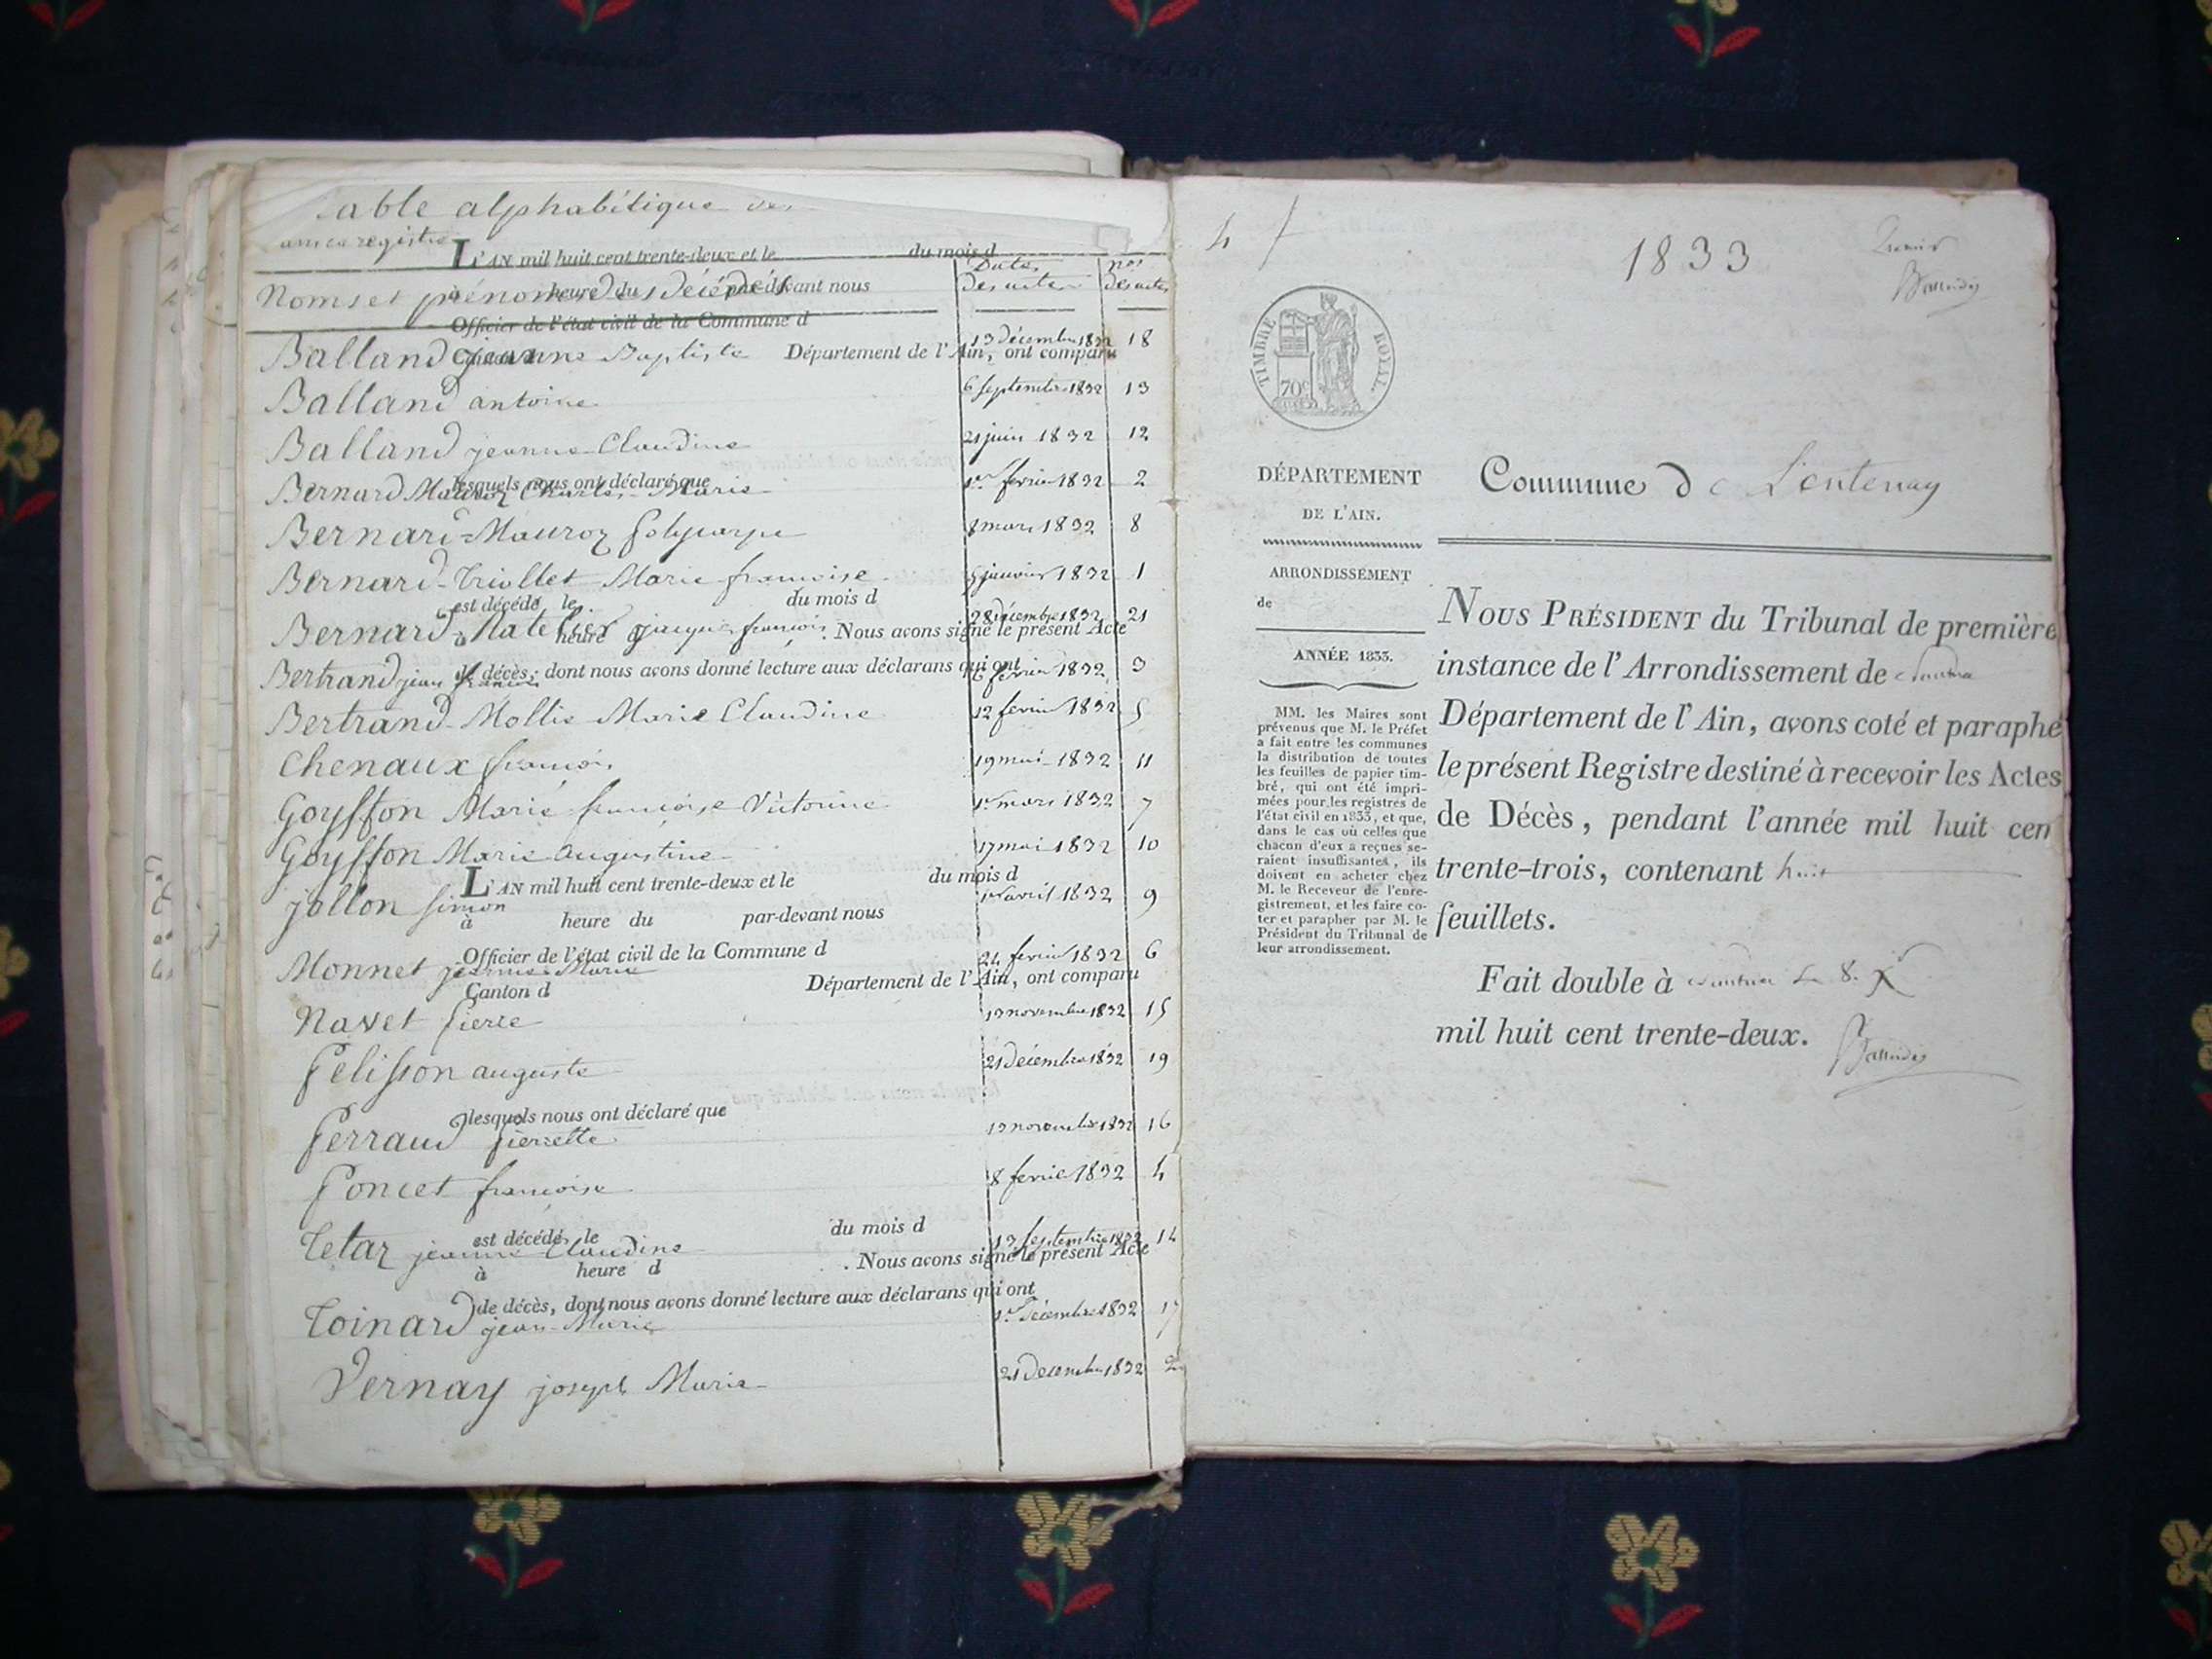 able alphabétique des
L'AN mil huit cent trente-deux et le du mois d
Noms et prénoms des décédés
Dates des actes
nos des actes
à heure du par-devant nous
Officier de l'état civil de la Commune d
Canton d Département de l'Ain, ont comparu
Balland jeanne Baptiste 13 décembre 1832 18
Balland antoine 6 septembre 1832 13
Balland jeanne Claudine 21 juin 1832 12
lesquels nous ont déclaré que
Bernard Mauroz Charles Marie 1er fevrier 1832 2
Bernard-Mauroz Polycarpe 8 mars 1832 8
Bernard-Triollet Marie francoise janvier 1832 1
est décédé le du mois d
Bernard jacques francois 28 décembre 1832 21
à heure d . Nous avons signé le présent Acte
de décès, dont nous avons donné lecture aux déclarans qui ont
Bertrand jean francois 6 fevrier 1832 3
Bertrand-Mollie Marie Claudine 12 fevrier 1832 5
Chenaux francois 19 mai 1832 11
Goyffon Marie francoise Victorine 1er mars 1832 7
Goyffon Marie augustine 17 mai 1832 10
L'AN mil huit cent trente-deux et le du mois d
jollon simon 1er avril 1832 9
à heure du par-devant nous
Officier de l'état civil de la Commune d
Monnet jeanne-Marie 24 fevrier 1832 6
Canton d Département de l'Ain, ont comparu
Navet Pierre 13 novembre 1832 15
Pelisson auguste 21 décembre 1832 19
lesquels nous ont déclaré que
Perraud Pierrette 13 novembre 1832 16
Poncet francoise 8 fevrier 1832 4
est décédé le du mois d
Tetaz jeanne Claudine 13 septembre 1832 14
à heure d . Nous avons signé le présent Acte
de décès, dont nous avons donné lecture aux déclarans qui ont
Toinard jean-Marie 1er décembre 1832 17
Vernay joseph Marie 21 decembre 1832
4
1833
TIMBRE ROYAL.
70c
DÉPARTEMENT
DE L'AIN.
ARRONDISSEMENT
de
ANNÉE 1833.
MM. les Maires sont
prévenus que M. le Préfet
a fait entre les communes
la distribution de toutes
les feuilles de papier tim-
bré, qui ont été impri-
mées pour les registres de
l'état civil en 1833, et que,
dans le cas où celles que
chacun d'eux a reçues se-
raient insuffisantes, ils
doivent en acheter chez
M. le Receveur de l'enre-
gistrement, et les faire co-
ter et parapher par M. le
Président du Tribunal de
leur arrondissement.
Commune de Lentenay
NOUS PRÉSIDENT du Tribunal de première
instance de l'Arrondissement de nantua
Département de l'Ain, avons coté et paraphé
le présent Registre destiné à recevoir les Actes
de Décès, pendant l'année mil huit cen
trente-trois, contenant huit
feuillets.
Fait double à nantua le 8. Xr
mil huit cent trente-deux.